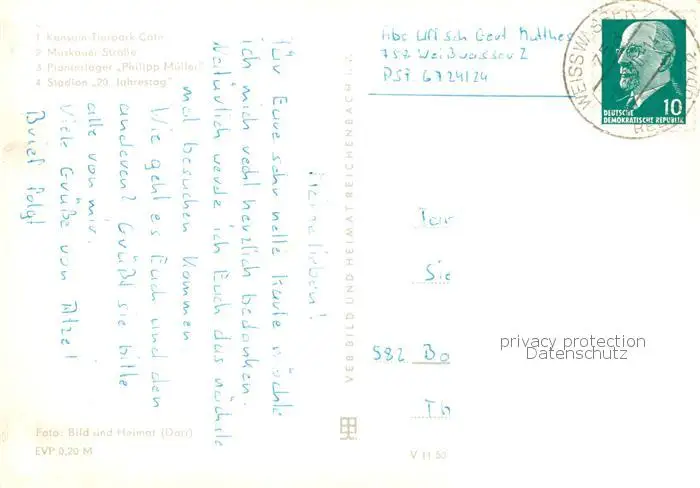 1 Konsum Tierpark-Café
2 Muskauer Straße
3 Pionierlager „Philipp Müller“
4 Stadion „20. Jahrestag“
Meine lieben!
Für Eure sehr nette Karte möchte
ich mich recht herzlich bedanken.
Natürlich werde ich Euch das nächste
mal besuchen kommen
Wie geht es Euch und den
anderen? Grüßt sie bitte
alle von mir.
Viele Grüße von Atze!
Brief folgt
Foto: Bild und Heimat (Darr)
EVP 0,20 M
VEB BILD UND HEIMAT REICHENBACH i. V.
V 11 50
Gert Matthes
757 Weißwasser 2
PSF 6724/24
WEISSWASSER
DEUTSCHE
DEMOKRATISCHE REPUBLIK
10
Sie
582 Bo
Th
privacy protection
Datenschutz